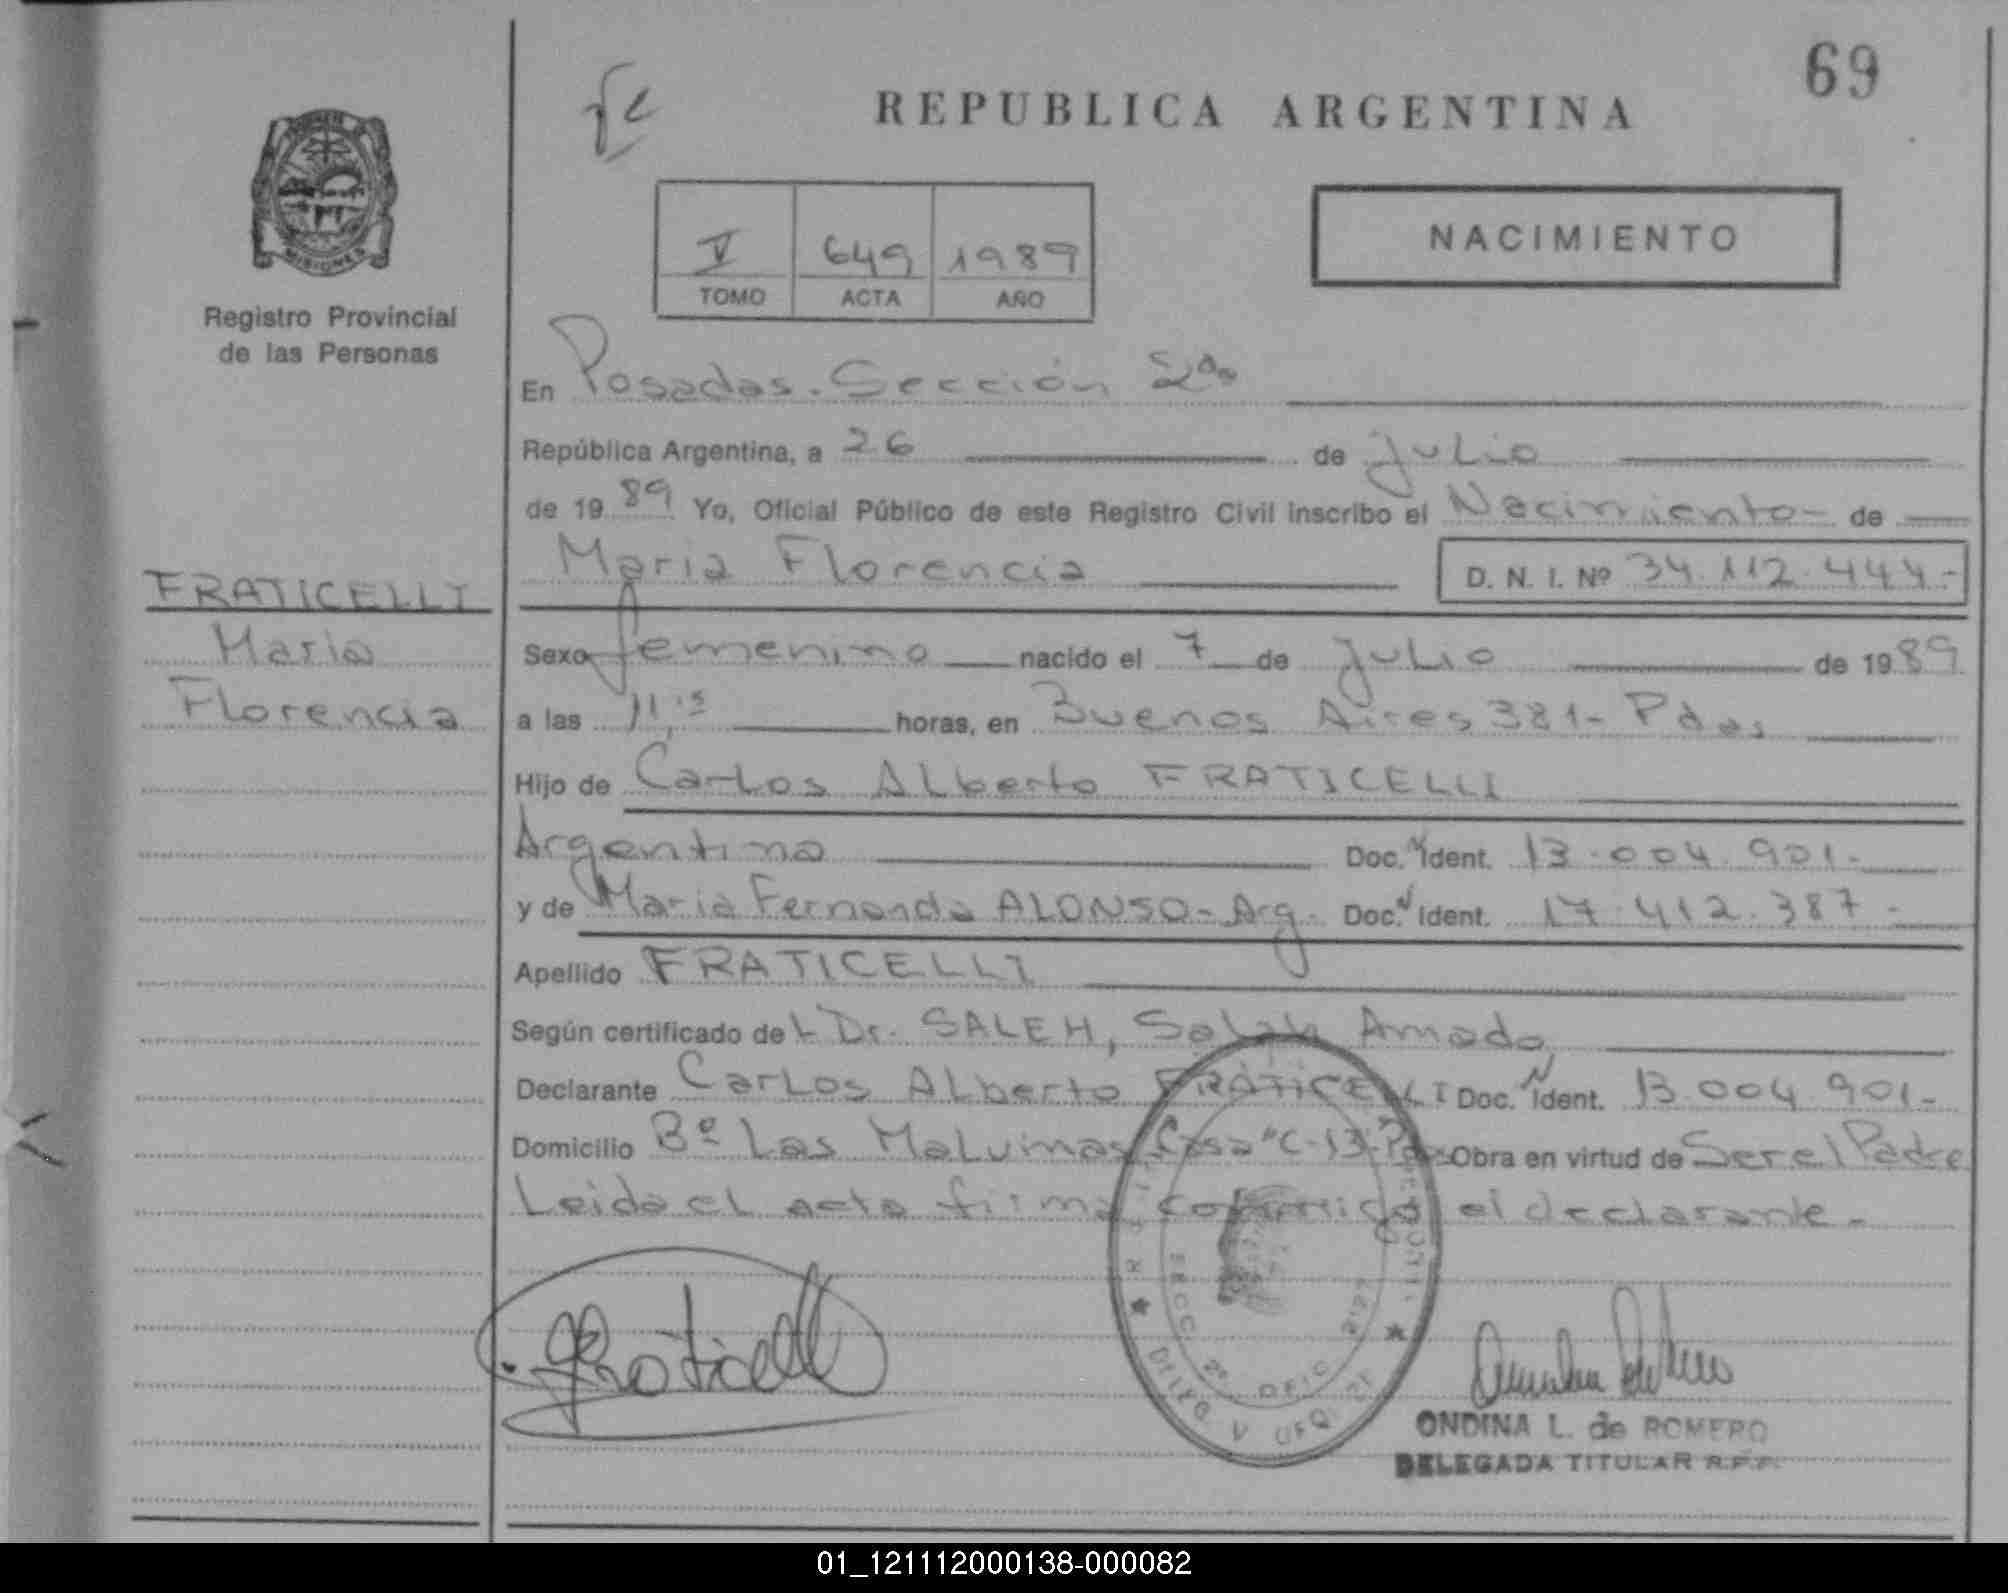 69
REPUBLICA ARGENTINA
MISIONES
Registro Provincial
de las Personas
V 649 1989
TOMO ACTA AÑO
NACIMIENTO
En Posadas. Sección 2da
República Argentina, a 26 de Julio
de 1989 Yo, Oficial Público de este Registro Civil inscribo el Nacimiento- de
María Florencia D. N. I. Nº 34.112.444-
FRATICELLI
María
Florencia
Sexo femenino nacido el 7 de Julio de 1989
a las 11,15 horas, en Buenos Aires 381- Pdas
Hijo de Carlos Alberto FRATICELLI
Argentino Doc. Ident. 13.004.901-
y de María Fernanda ALONSO- Arg. Doc. Ident. 17.412.387-
Apellido FRATICELLI
Según certificado del Dr. SALEH, Amado
Declarante Carlos Alberto FRATICELLI Doc. Ident. 13.004.901-
Domicilio Bº Las Malvinas Casa "C-13" Obra en virtud de Ser el Padre
Leida el acta firma conmigo el declarante-
Fraticelli
SECC. 2º OFIC
ONDINA L. de ROMERO
DELEGADA TITULAR R.P.P.
01_121112000138-000082